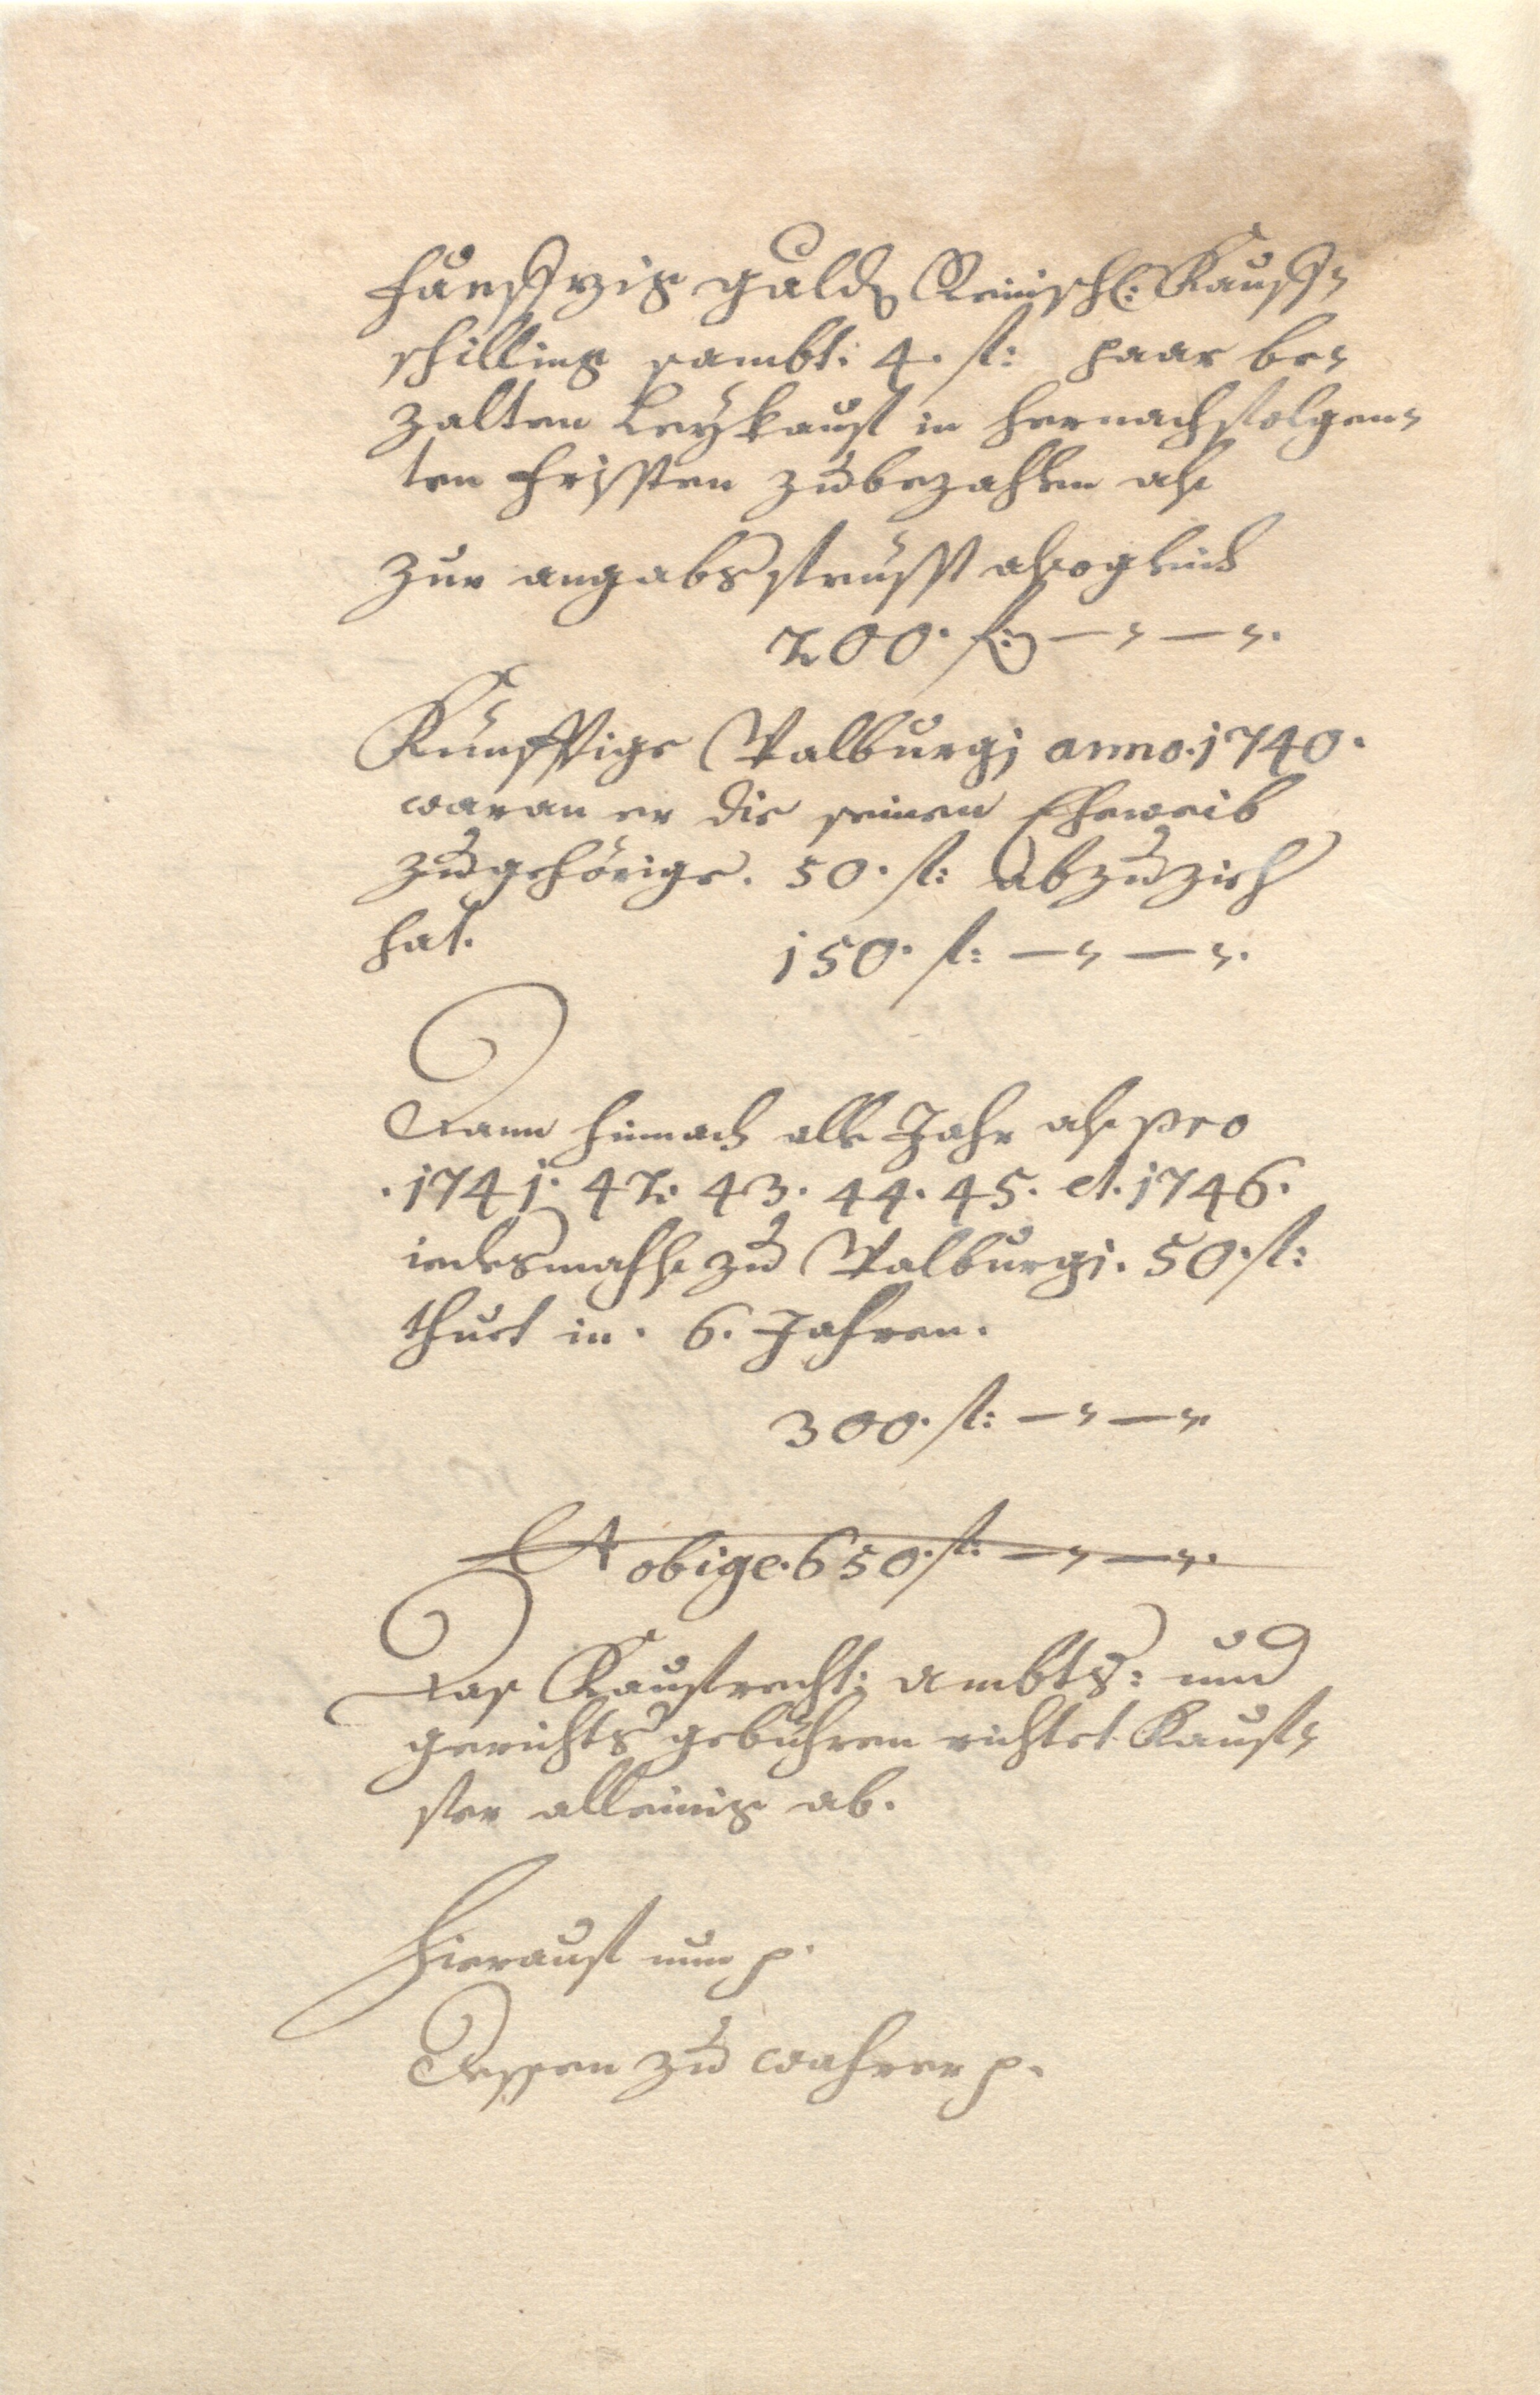 fünffzig guld Reinischl: Kauff-
schilling sambt: 4. fl: paar be-
zalten Leykauf in hernachfolgen-
ten Frissten zubezahlen als
zur angabsfrüsst alsogleich
200. fl: — " — ".
Künfftige Walburgj anno. 1740.
waran er die seinen Eheweib
zugehörige. 50. fl: abzuzieh
hat. 150. fl: — " — ".
Dann hinnach alle Jahr als pro
. 1741. 42. 43. 44. 45. et. 1746.
iedesmahls zu Walburgj. 50. fl:
thuet in. 6. Jahren.
300. fl: — " — ".
obige. 650. fl: — " — ".
Das Kaufrecht: ambts: und
gerichts gebühren richtet Kauf-
fer alleinig ab.
Hierauf nun p.
Dessen zu wahrer p.